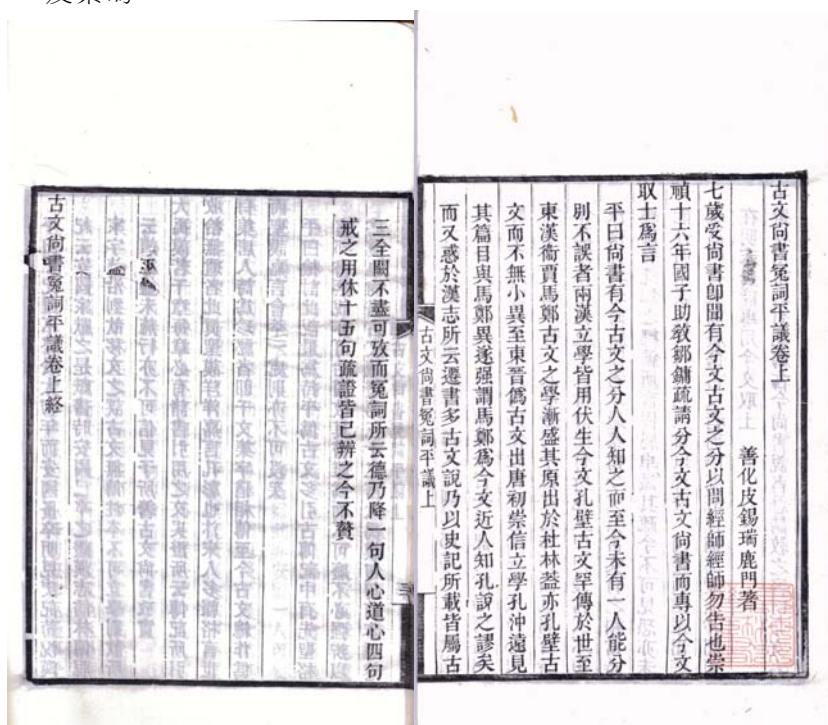 古文尚書冤詞平議卷上
善化皮錫瑞鹿門著
七歲受尚書卽聞有今文古文之分以問經師經師勿告也崇
禎十六年國子助敎鄒鏞疏請分今文古文尚書而專以今文
取士爲言
平曰尚書有今古文之分人人知之而至今未有一人能分
別不誤者兩漢立學皆用伏生今文孔壁古文罕傳於世至
東漢衞賈馬鄭古文之學漸盛其原出於杜林葢亦孔壁古
文而不無小異至東晉僞古文出唐初崇信立學孔沖遠見
其篇目與馬鄭異遂强謂馬鄭爲今文近人知孔說之謬矣
而又惑於漢志所云遷書多古文說乃以史記所載皆屬古
古文尚書冤詞平議上
三全闕不盡可攷而冤詞所云德乃降一句人心道心四句
戒之用休十五句疏證皆已辨之今不贅
古文尚書冤詞平議卷上終